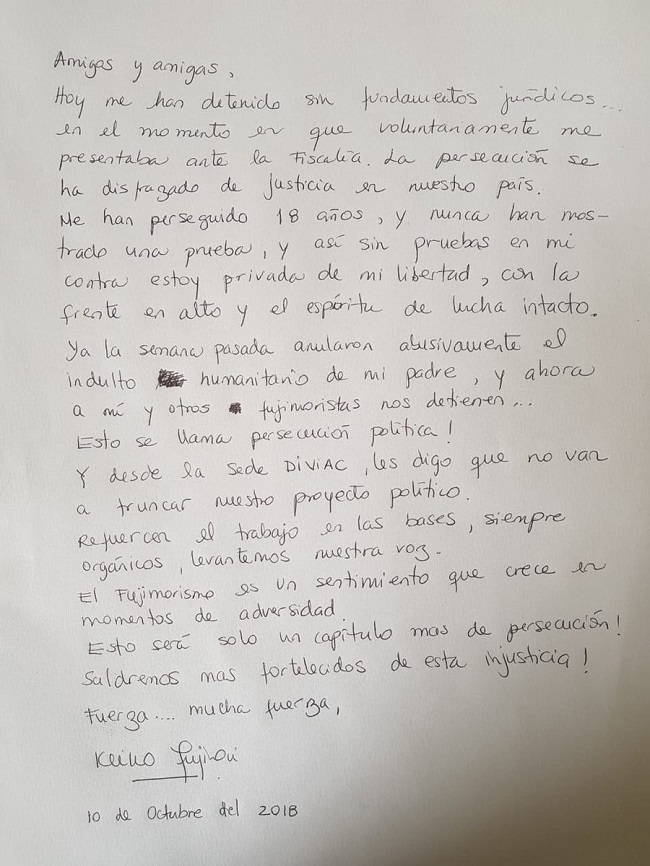 Amigas y amigas,
Hoy me han detenido sin fundamentos jurídicos...
en el momento en que voluntariamente me
presentaba ante la Fiscalía. La persecución se
ha disfrazado de justicia en nuestro país.
Me han perseguido 18 años, y nunca han mos-
trado una prueba, y así sin pruebas en mi
contra estoy privada de mi libertad, con la
frente en alto y el espíritu de lucha intacto.
Ya la semana pasada anularon abusivamente el
indulto humanitario de mi padre, y ahora
a mí y otros fujimoristas nos detienen...
Esto se llama persecución política!
Y desde la sede DIVIAC, les digo que no van
a truncar nuestro proyecto político.
Refuercen el trabajo en las bases, siempre
orgánicos, levantemos nuestra voz.
El Fujimorismo es un sentimiento que crece en
momentos de adversidad.
Esto será solo un capítulo mas de persecución!
Saldremos mas fortelecidos de esta injusticia!
Fuerza.... mucha fuerza,
Keiko Fujimori
10 de Octubre del 2018